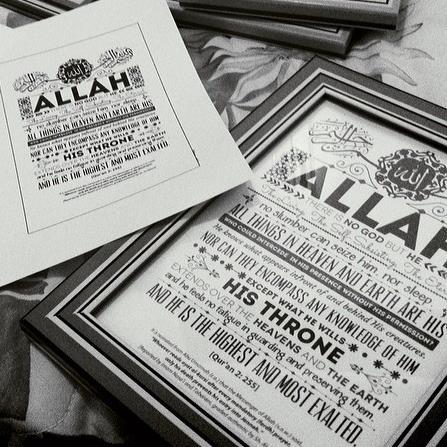 الله
ALLAH
ALL THINGS IN HEAVEN AND EARTH ARE HIS
NOR CAN THEY ENCOMPASS ANY KNOWLEDGE OF HIM
EXCEPT WHAT HE WILLS
HIS THRONE
AND HE IS THE HIGHEST AND MOST EXALTED
(Quran 2:255)
الله
ALLAH
THERE IS NO GOD BUT HE
The Self Subsisting, The
no slumber can seize him, nor sleep
ALL THINGS IN HEAVEN AND EARTH ARE HIS
WHO COULD INTERCEDE IN HIS PRESENCE WITHOUT HIS PERMISSION?
He knows what appears in front of and behind His creatures.
NOR CAN THEY ENCOMPASS ANY KNOWLEDGE OF HIM
EXCEPT WHAT HE WILLS
HIS THRONE
EXTENDS OVER THE HEAVENS AND THE EARTH
and he feels no fatigue in guarding and preserving them.
AND HE IS THE HIGHEST AND MOST EXALTED
(Quran 2:255)